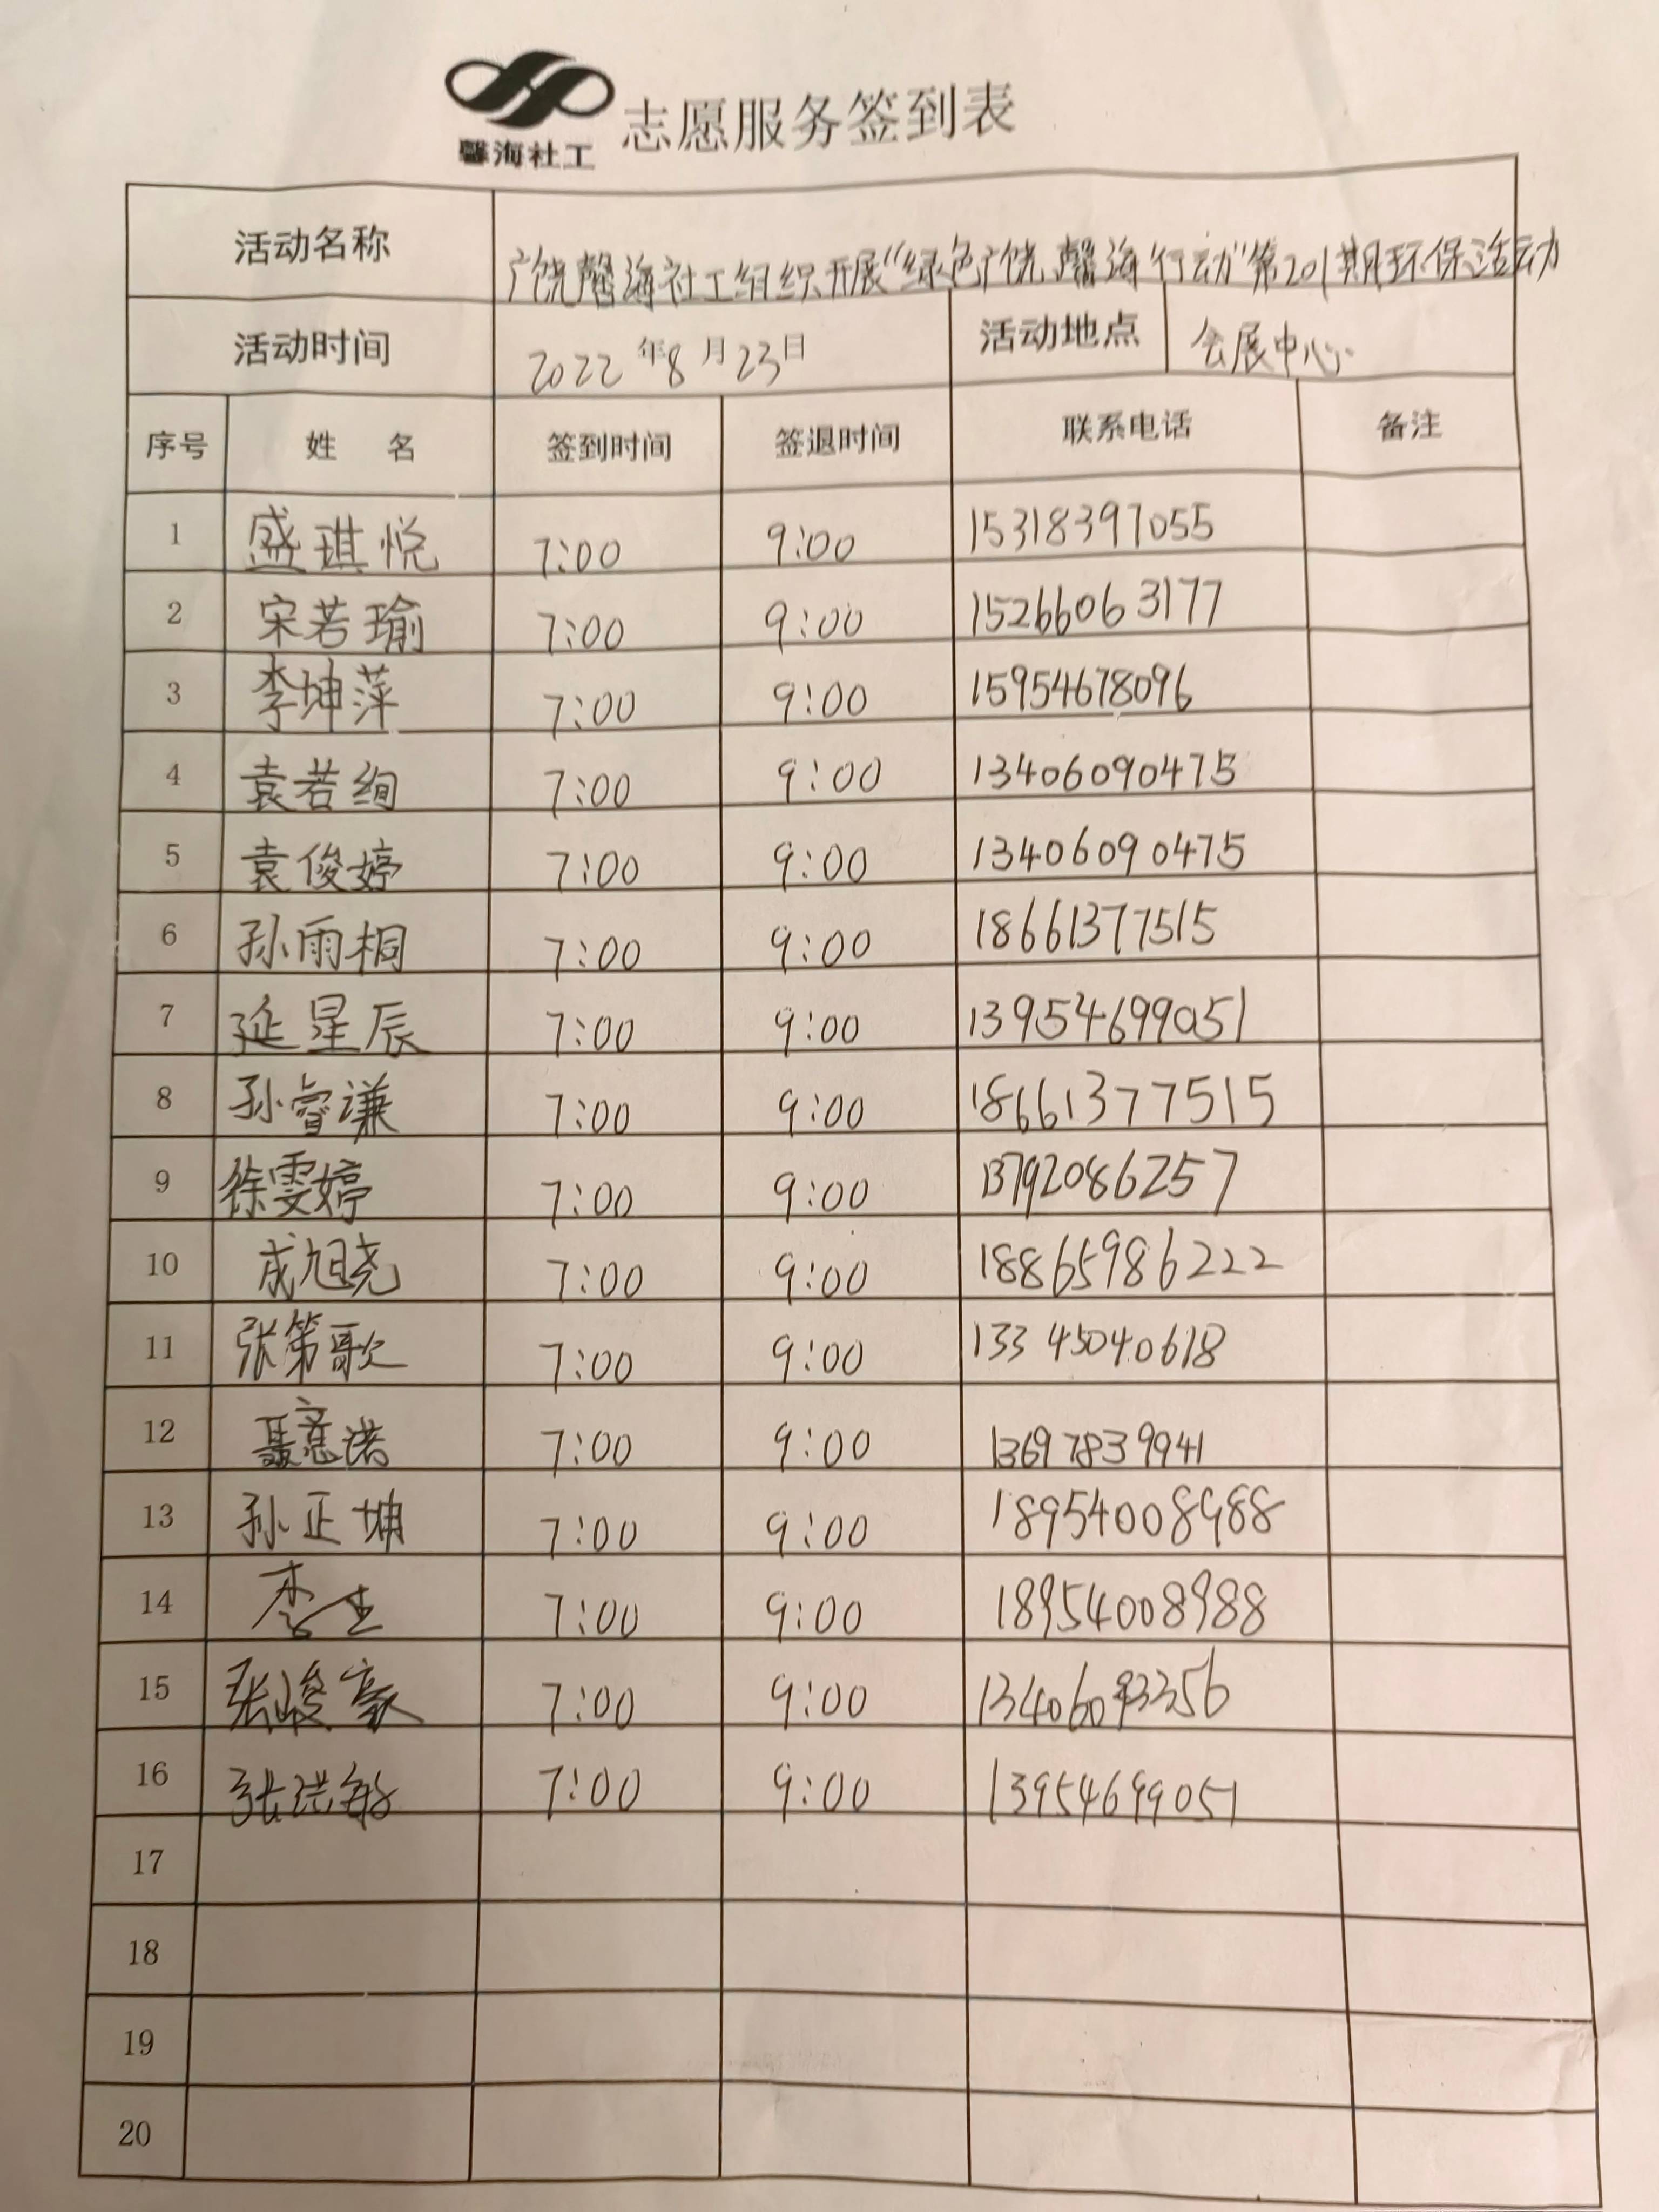 馨海社工 志愿服务签到表
活动名称 广饶馨海社工组织开展“绿色广饶 馨海行动”第201期环保活动
活动时间 2022年8月23日 活动地点 会展中心
序号 姓 名 签到时间 签退时间 联系电话 备注
1 盛琪悦 7:00 9:00 15318397055
2 宋若瑜 7:00 9:00 15266063177
3 李坤萍 7:00 9:00 15954678096
4 袁若绚 7:00 9:00 13406090475
5 袁俊婷 7:00 9:00 13406090475
6 孙雨桐 7:00 9:00 18661377515
7 延星辰 7:00 9:00 13954699051
8 孙睿谦 7:00 9:00 18661377515
9 徐雯婷 7:00 9:00 13792086257
10 成旭尧 7:00 9:00 18865986222
11 张笫歌 7:00 9:00 13345040618
12 聂意诺 7:00 9:00 13697839941
13 孙正坤 7:00 9:00 18954008988
14 7:00 9:00 18954008988
15 张峻豪 7:00 9:00 13406093356
16 张洪敏 7:00 9:00 13954699051
17
18
19
20